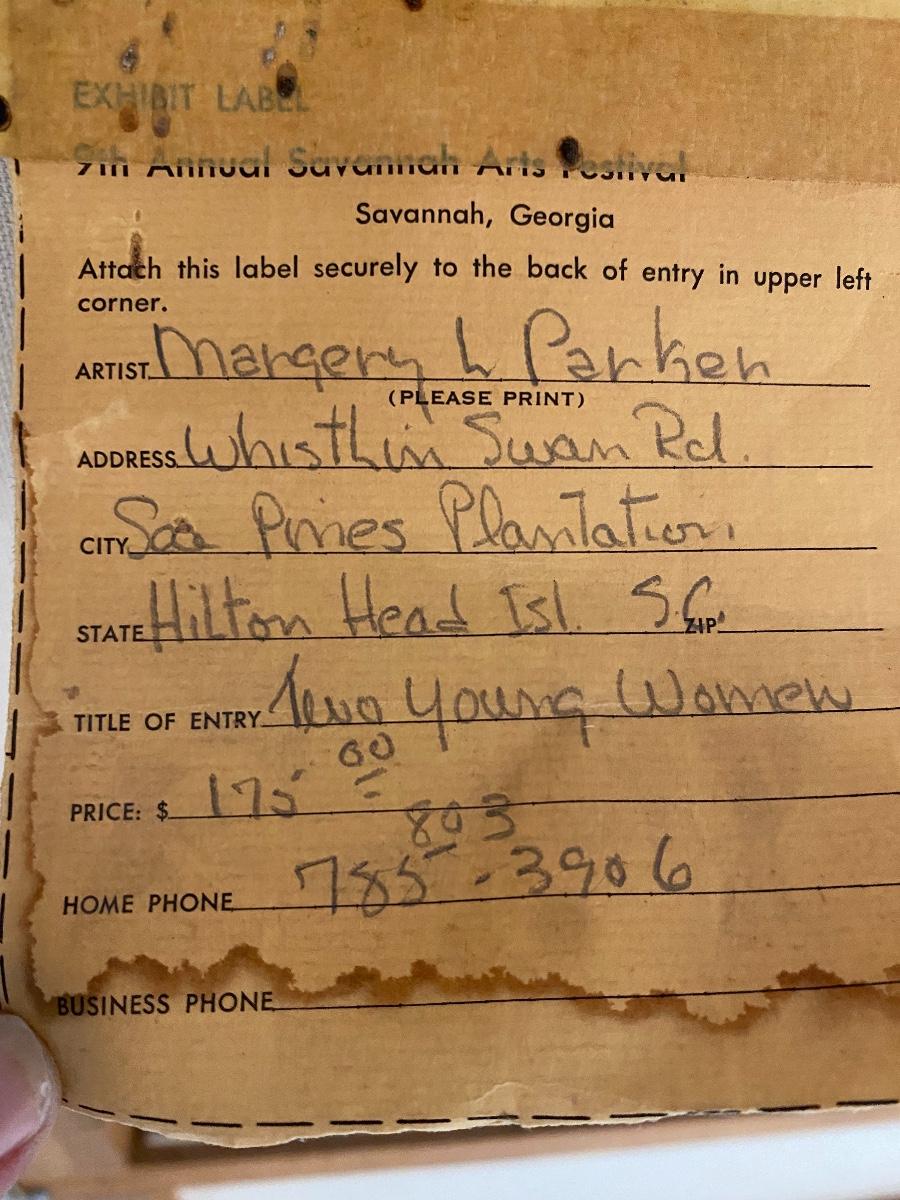 EXHIBIT LABEL
9th Annual Savannah Arts Festival
Savannah, Georgia
Attach this label securely to the back of entry in upper left
corner.
ARTIST Margery L Parker
(PLEASE PRINT)
ADDRESS Whistlin Swan Rd.
CITY Sea Pines Plantation
STATE Hilton Head Isl. S.C. ZIP
TITLE OF ENTRY Two Young Women
PRICE: $ 175 00
803
HOME PHONE 785-3906
BUSINESS PHONE